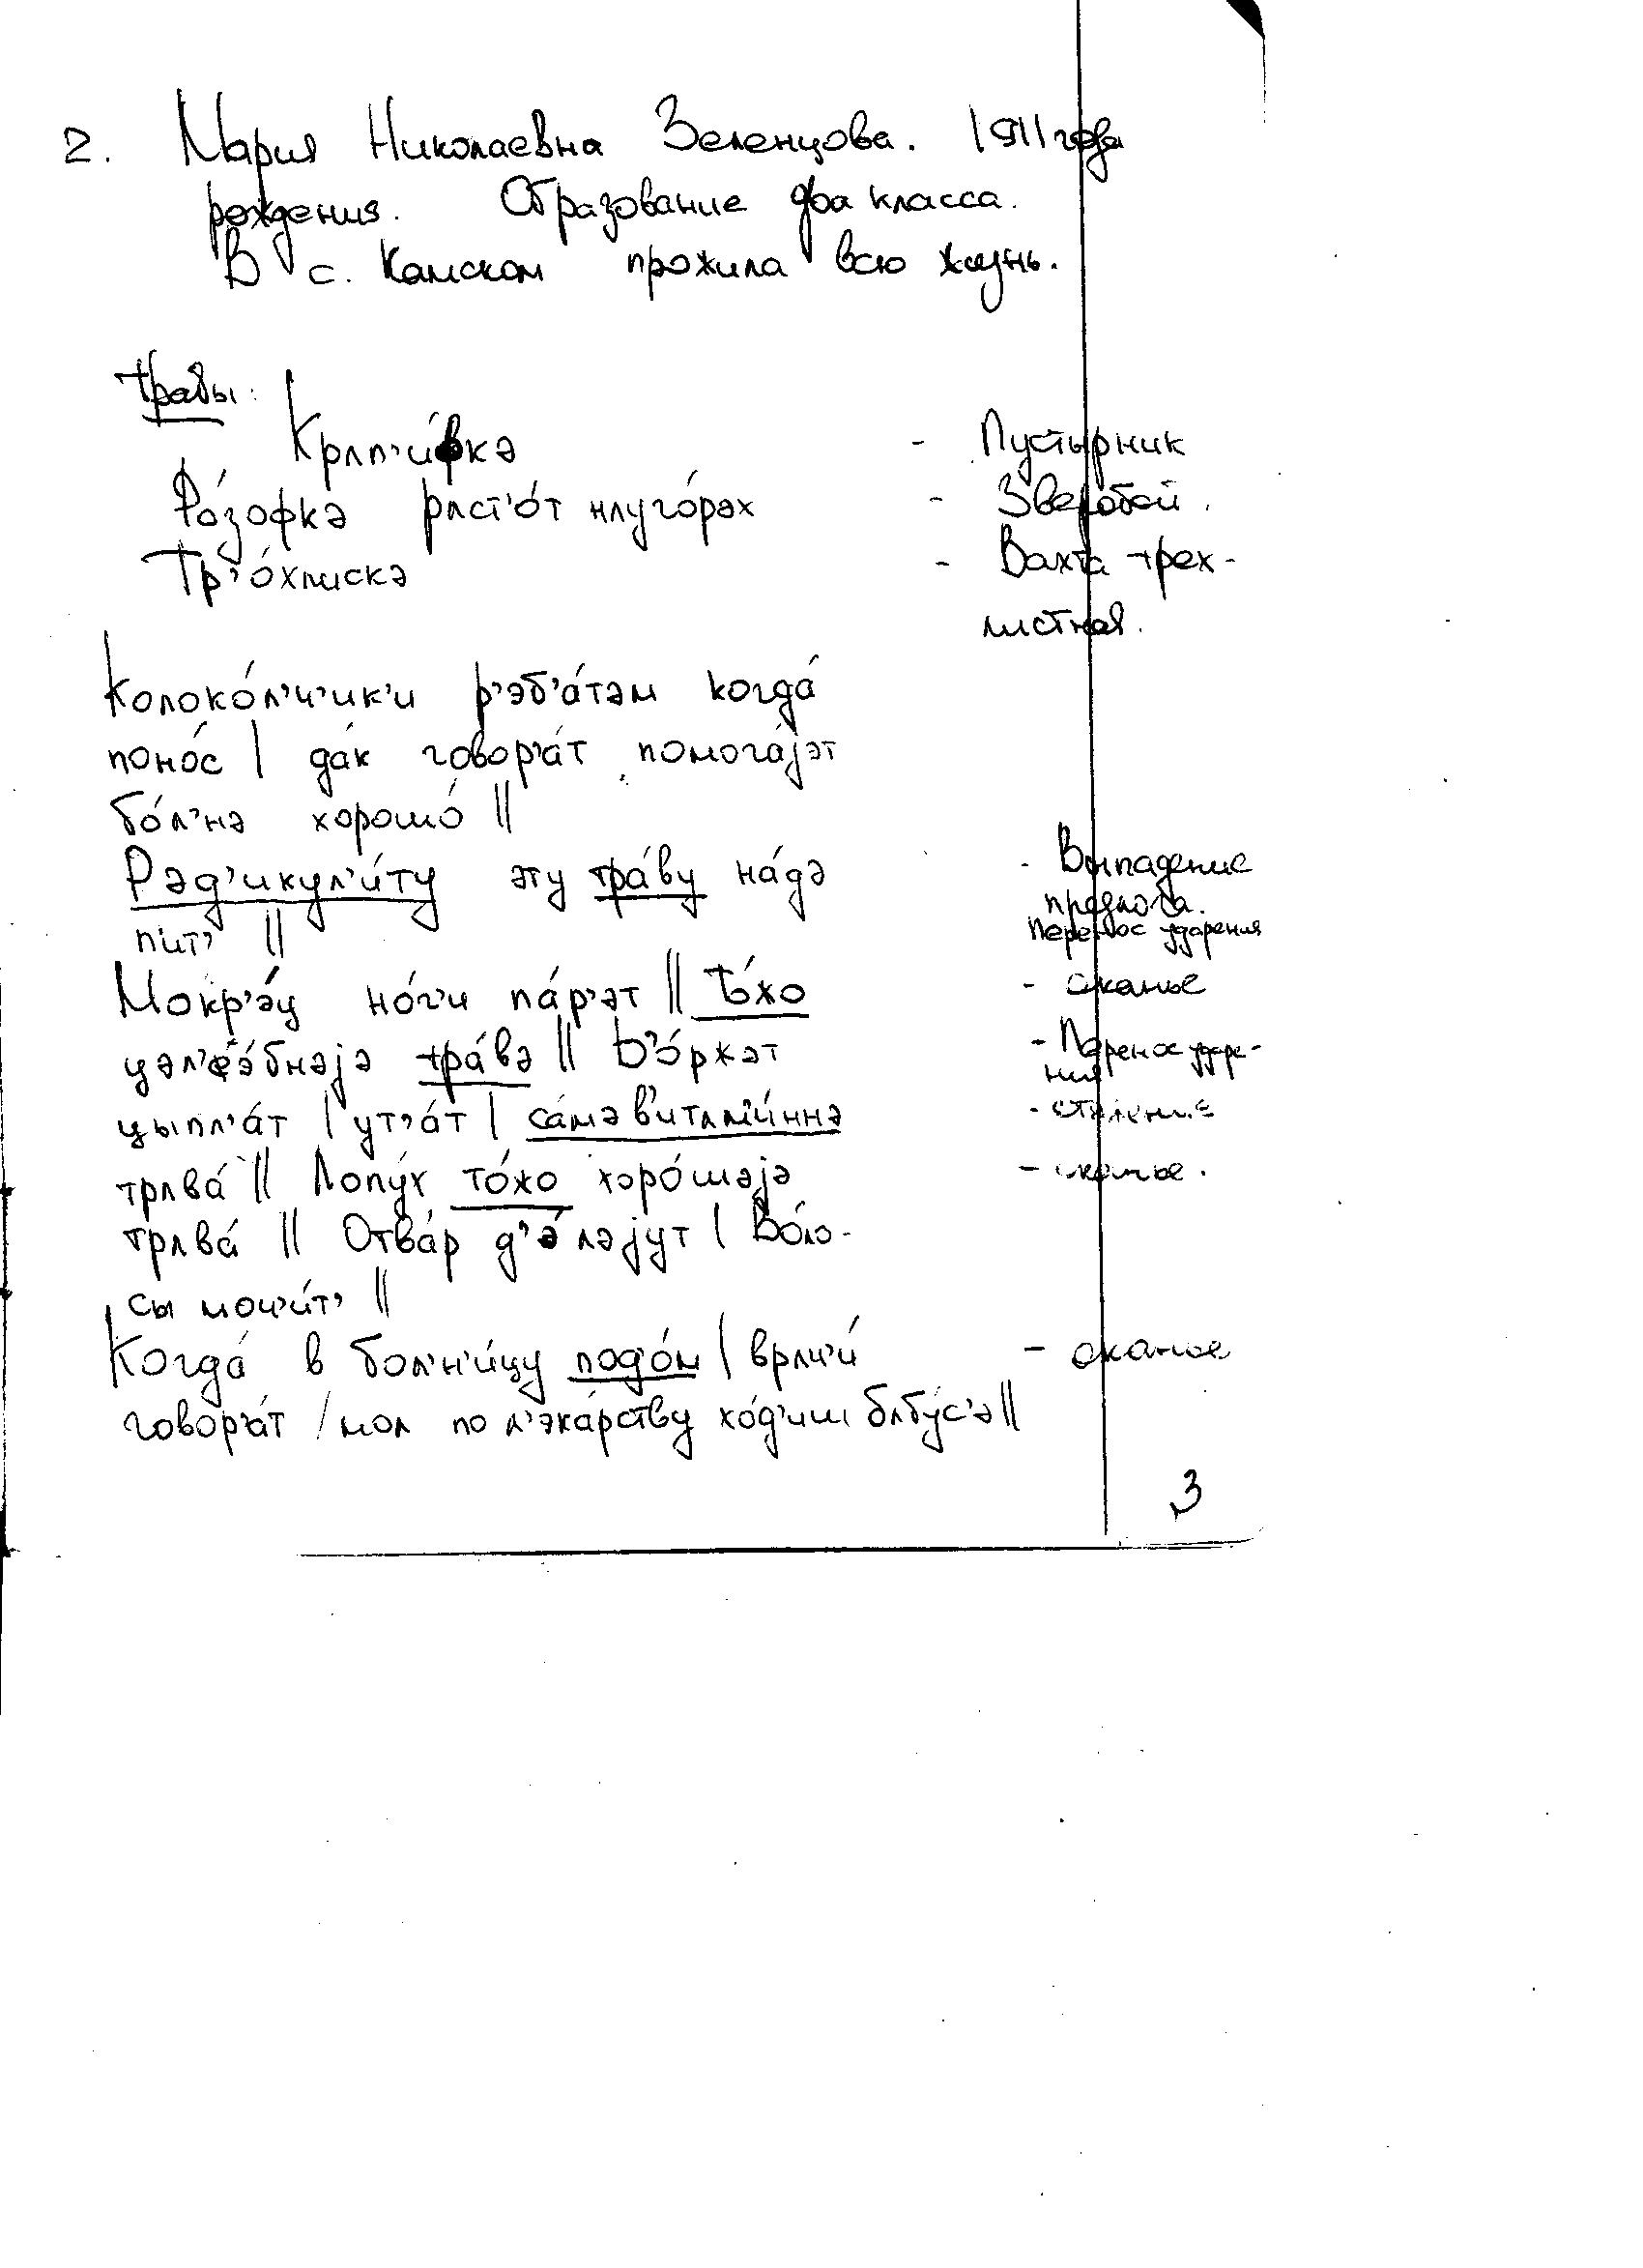 2. Мария Николаевна Зеленцова. 1911 года
рождения. Образование два класса.
В с. Камском прожила всю жизнь.
Травы:
Крʌп'и́фкə - Пустырник
Ро́зофкə рʌст'о́т нʌуго́рəх - Зверобой.
Тр'о́хлискə - Вахта трех-
листная.
Колоко́л'ч'ик'и р'эб'а́тəм когда́
поно́с | да́к говор'а́т помога́jэт
бо́л'нə хорошо́ ||
Рəд'икул'и́ту эту тра́ву на́дə - Выпадение
предлога.
пит' || Перенос ударения
Мокр'э́ц но́г'и па́р'əт || То́жо - оканье
цəл'э́бнəjə тра́вə || В'о́ркəт - Перенос ударе-
ния
цыпл'а́т | ут'а́т | са́мə в'итʌм'и́ннə - стяжение
трʌва́ || Лопу́х то́жо хəро́шəjə - оканье.
трʌва́ || Отва́р д'э́лəjут | Во́ло-
сы моч'и́т' ||
Когда́ в бол'н'и́цу под'о́м | врʌч'и́ - оканье
говор'а́т / мол по л'эка́рству хо́д'иш бʌбу́с'ə ||
3